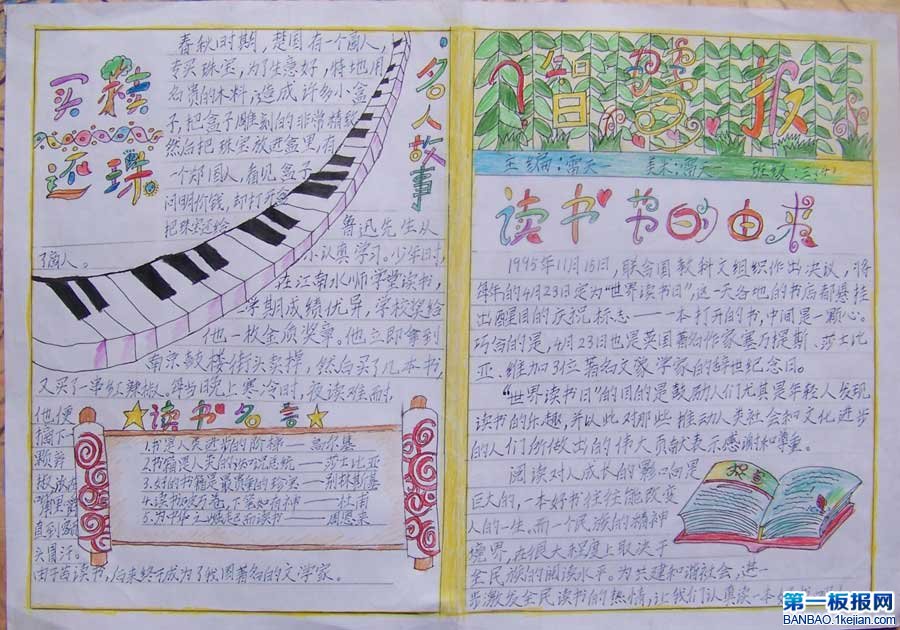 买椟
还珠
春秋时期，楚国有一个商人，
专买珠宝，为了生意好，特地用
名贵的木料，造成许多小盒
子，把盒子雕刻的非常精致
然后把珠宝放进盒里，有
一个郑国人，看见盒子
问明价钱，却打开盒
把珠宝还给
了商人。
名人故事
鲁迅先生从
小认真学习。少年时，
在江南水师学堂读书，
学期成绩优异，学校奖给
他一枚金质奖章。他立即拿到
南京鼓楼街头卖掉，然后买了几本书，
又买了一串红辣椒。每当晚上寒冷时，夜读难耐，
他便
摘下一
颗辣
椒，放在
嘴里
直到
头冒汗。
由于苦读书，后来终于成为了我国著名的文学家。
☆读书名言☆
1.书是人类进步的阶梯——高尔基
2.书籍是人类的——莎士比亚
3.好的书籍是最贵重的珍宝——别林斯基
4.读书破万卷，下笔如有神——杜甫
5.为中华之崛起而读书——周恩来
报
雷天 美术：雷天 班级：三
读书节的由来
1995年11月15日，联合国教科文组织作出决议，将
每年的4月23日定为“世界读书日”，这一天各地的书店都悬挂
出醒目的庆祝标志——一本打开的书，中间是一颗心。
巧合的是，4月23日也是英国著名作家塞万提斯、莎士比
亚、维加3位著名文家学家的辞世纪念日。
“世界读书日”的目的是鼓励人们尤其是年轻人发现
读书的乐趣，并以此对那些推动人类社会和文化进步
的人们所做出的伟大贡献表示感谢和尊重。
阅读对人成长的影响是
巨大的，一本好书往往能改变
人的一生。而一个民族的精神
境界，在很大程度上取决于
全民族的阅读水平。为共建和谐社会，进一
步激发全民读书的热情，让我们认真读一本好书吧！
第一板报网
BANBAO.1kejian.com